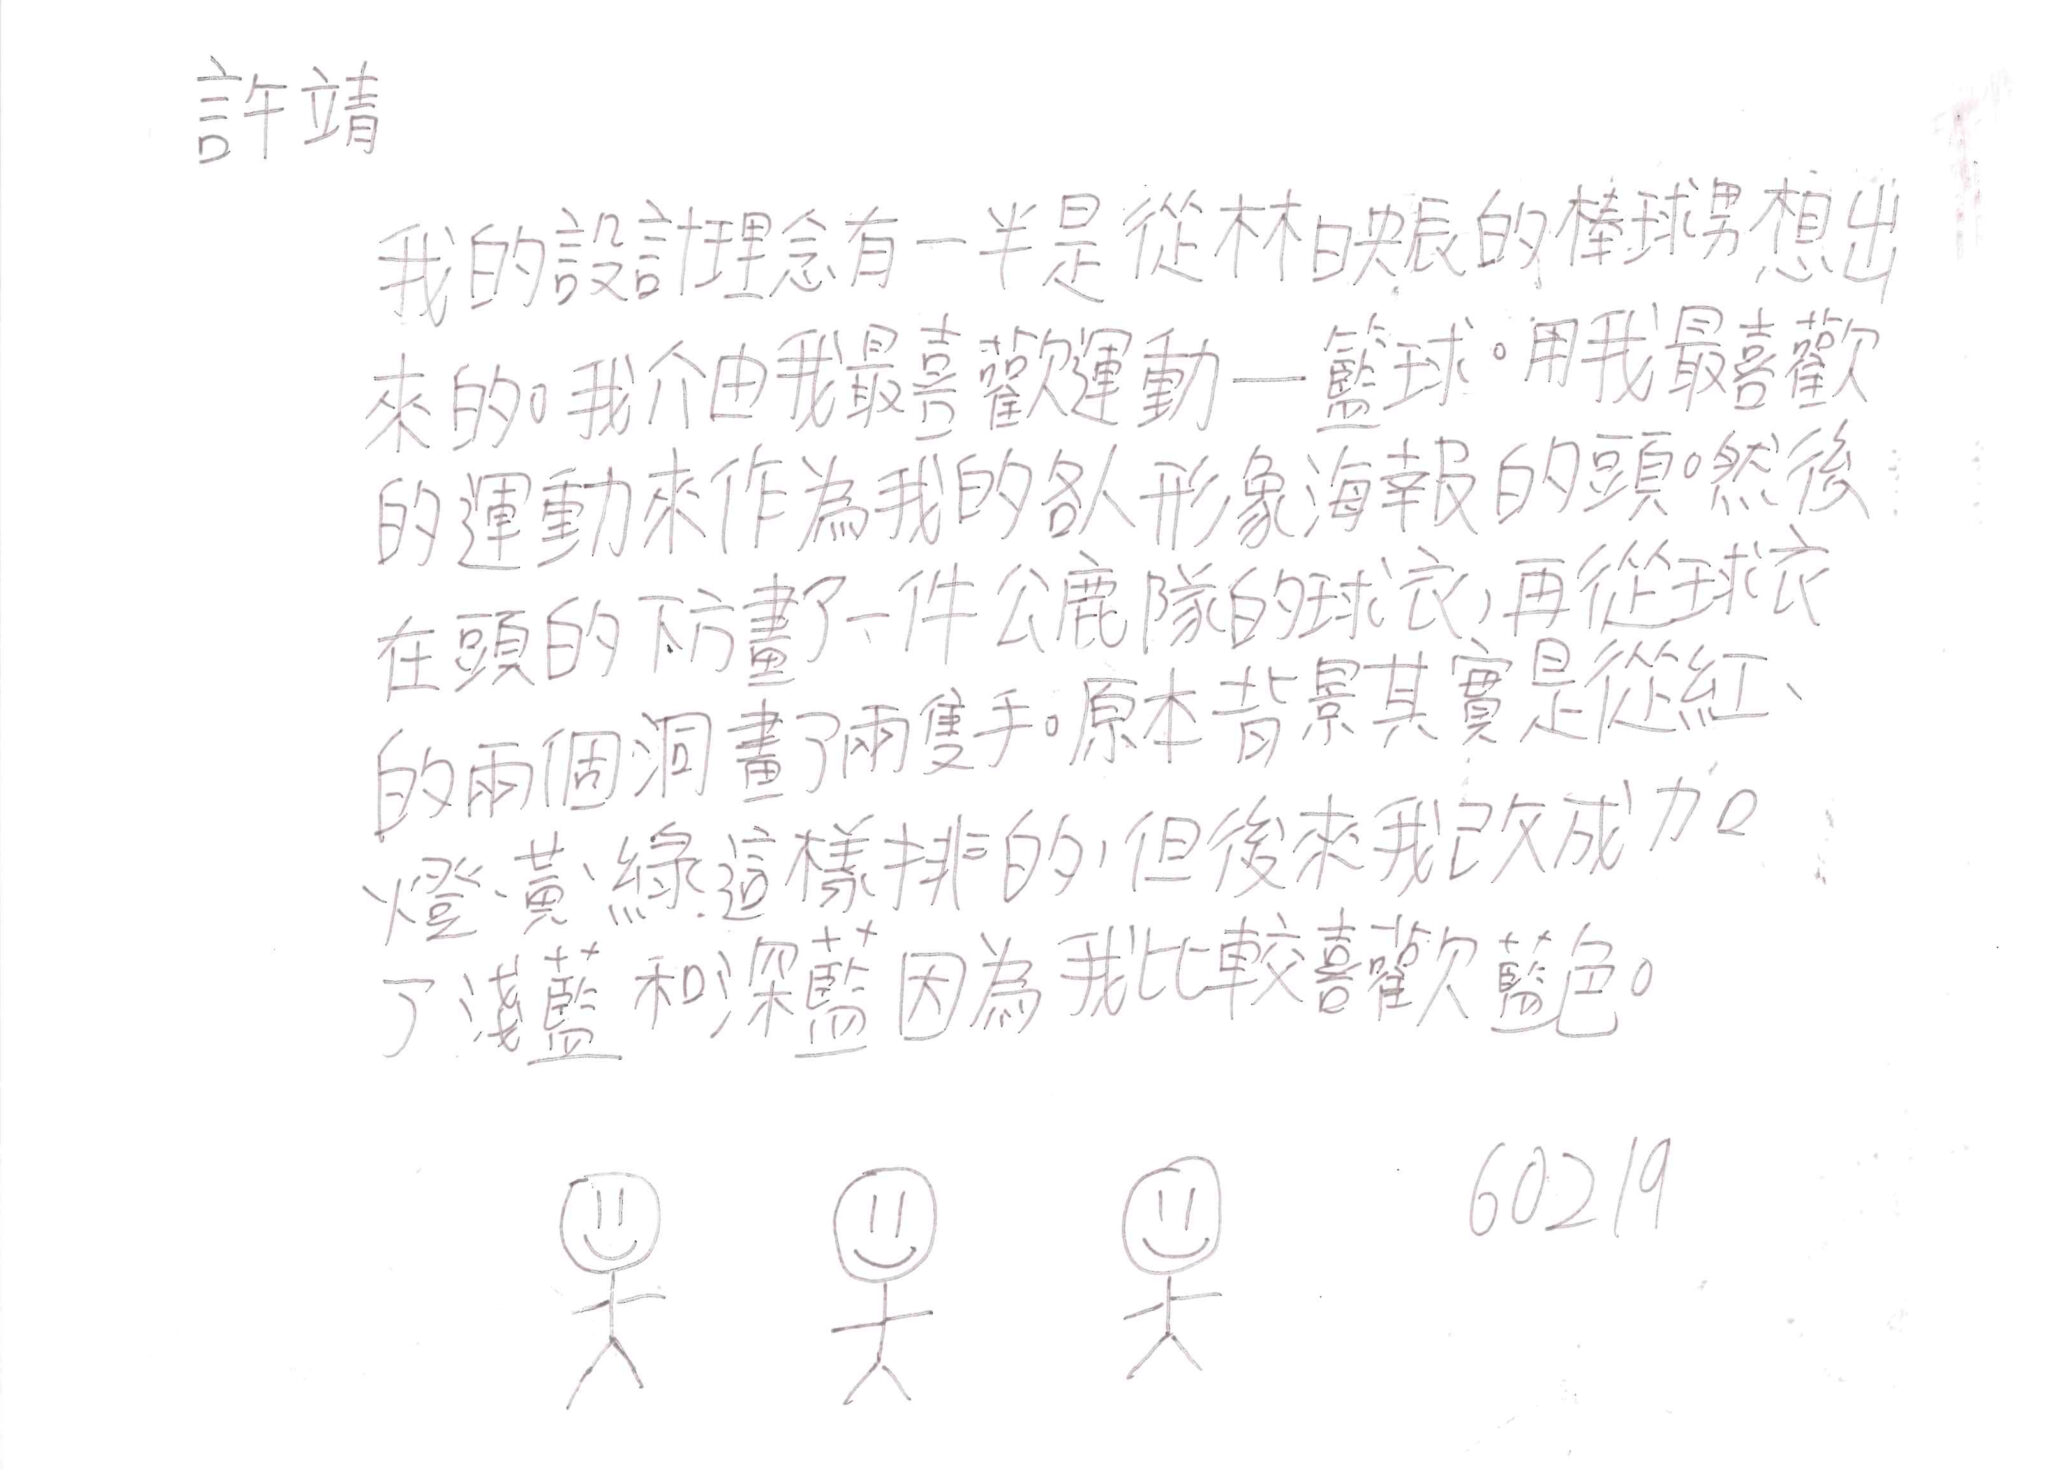 許靖
我的設計理念有一半是從林映辰的棒球男想出
來的。我介由我最喜歡運動—籃球。用我最喜歡
的運動來作為我的各人形象海報的頭。然後
在頭的下方畫了一件公鹿隊的球衣,再從球衣
的兩個洞畫了兩隻手。原本背景其實是從紅、
燈、黃、綠這樣排的,但後來我改成加
了淺藍和深藍因為我比較喜歡藍色。
60219